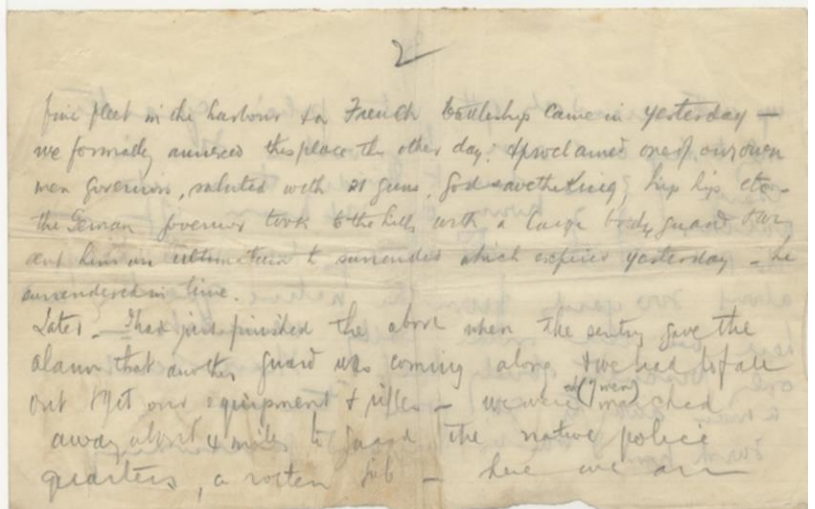 2
fine fleet in the harbour & a French battleship came in yesterday —
we formally annexed this place the other day; & proclaimed one of our own
men Governor, saluted with 21 guns, God save the King, hip hip etc —
the German Governor took to the hills with a large body guard & we
sent him an ultimatum to surrender which expired yesterday — he
surrendered in time.
Later — I had just finished the above when the sentry gave the
alarm that another guard was coming along & we had to fall
out & get our equipment & rifles — we were (7 men) marched
away about 4 miles to guard the native police
quarters, a rotten job — here we are